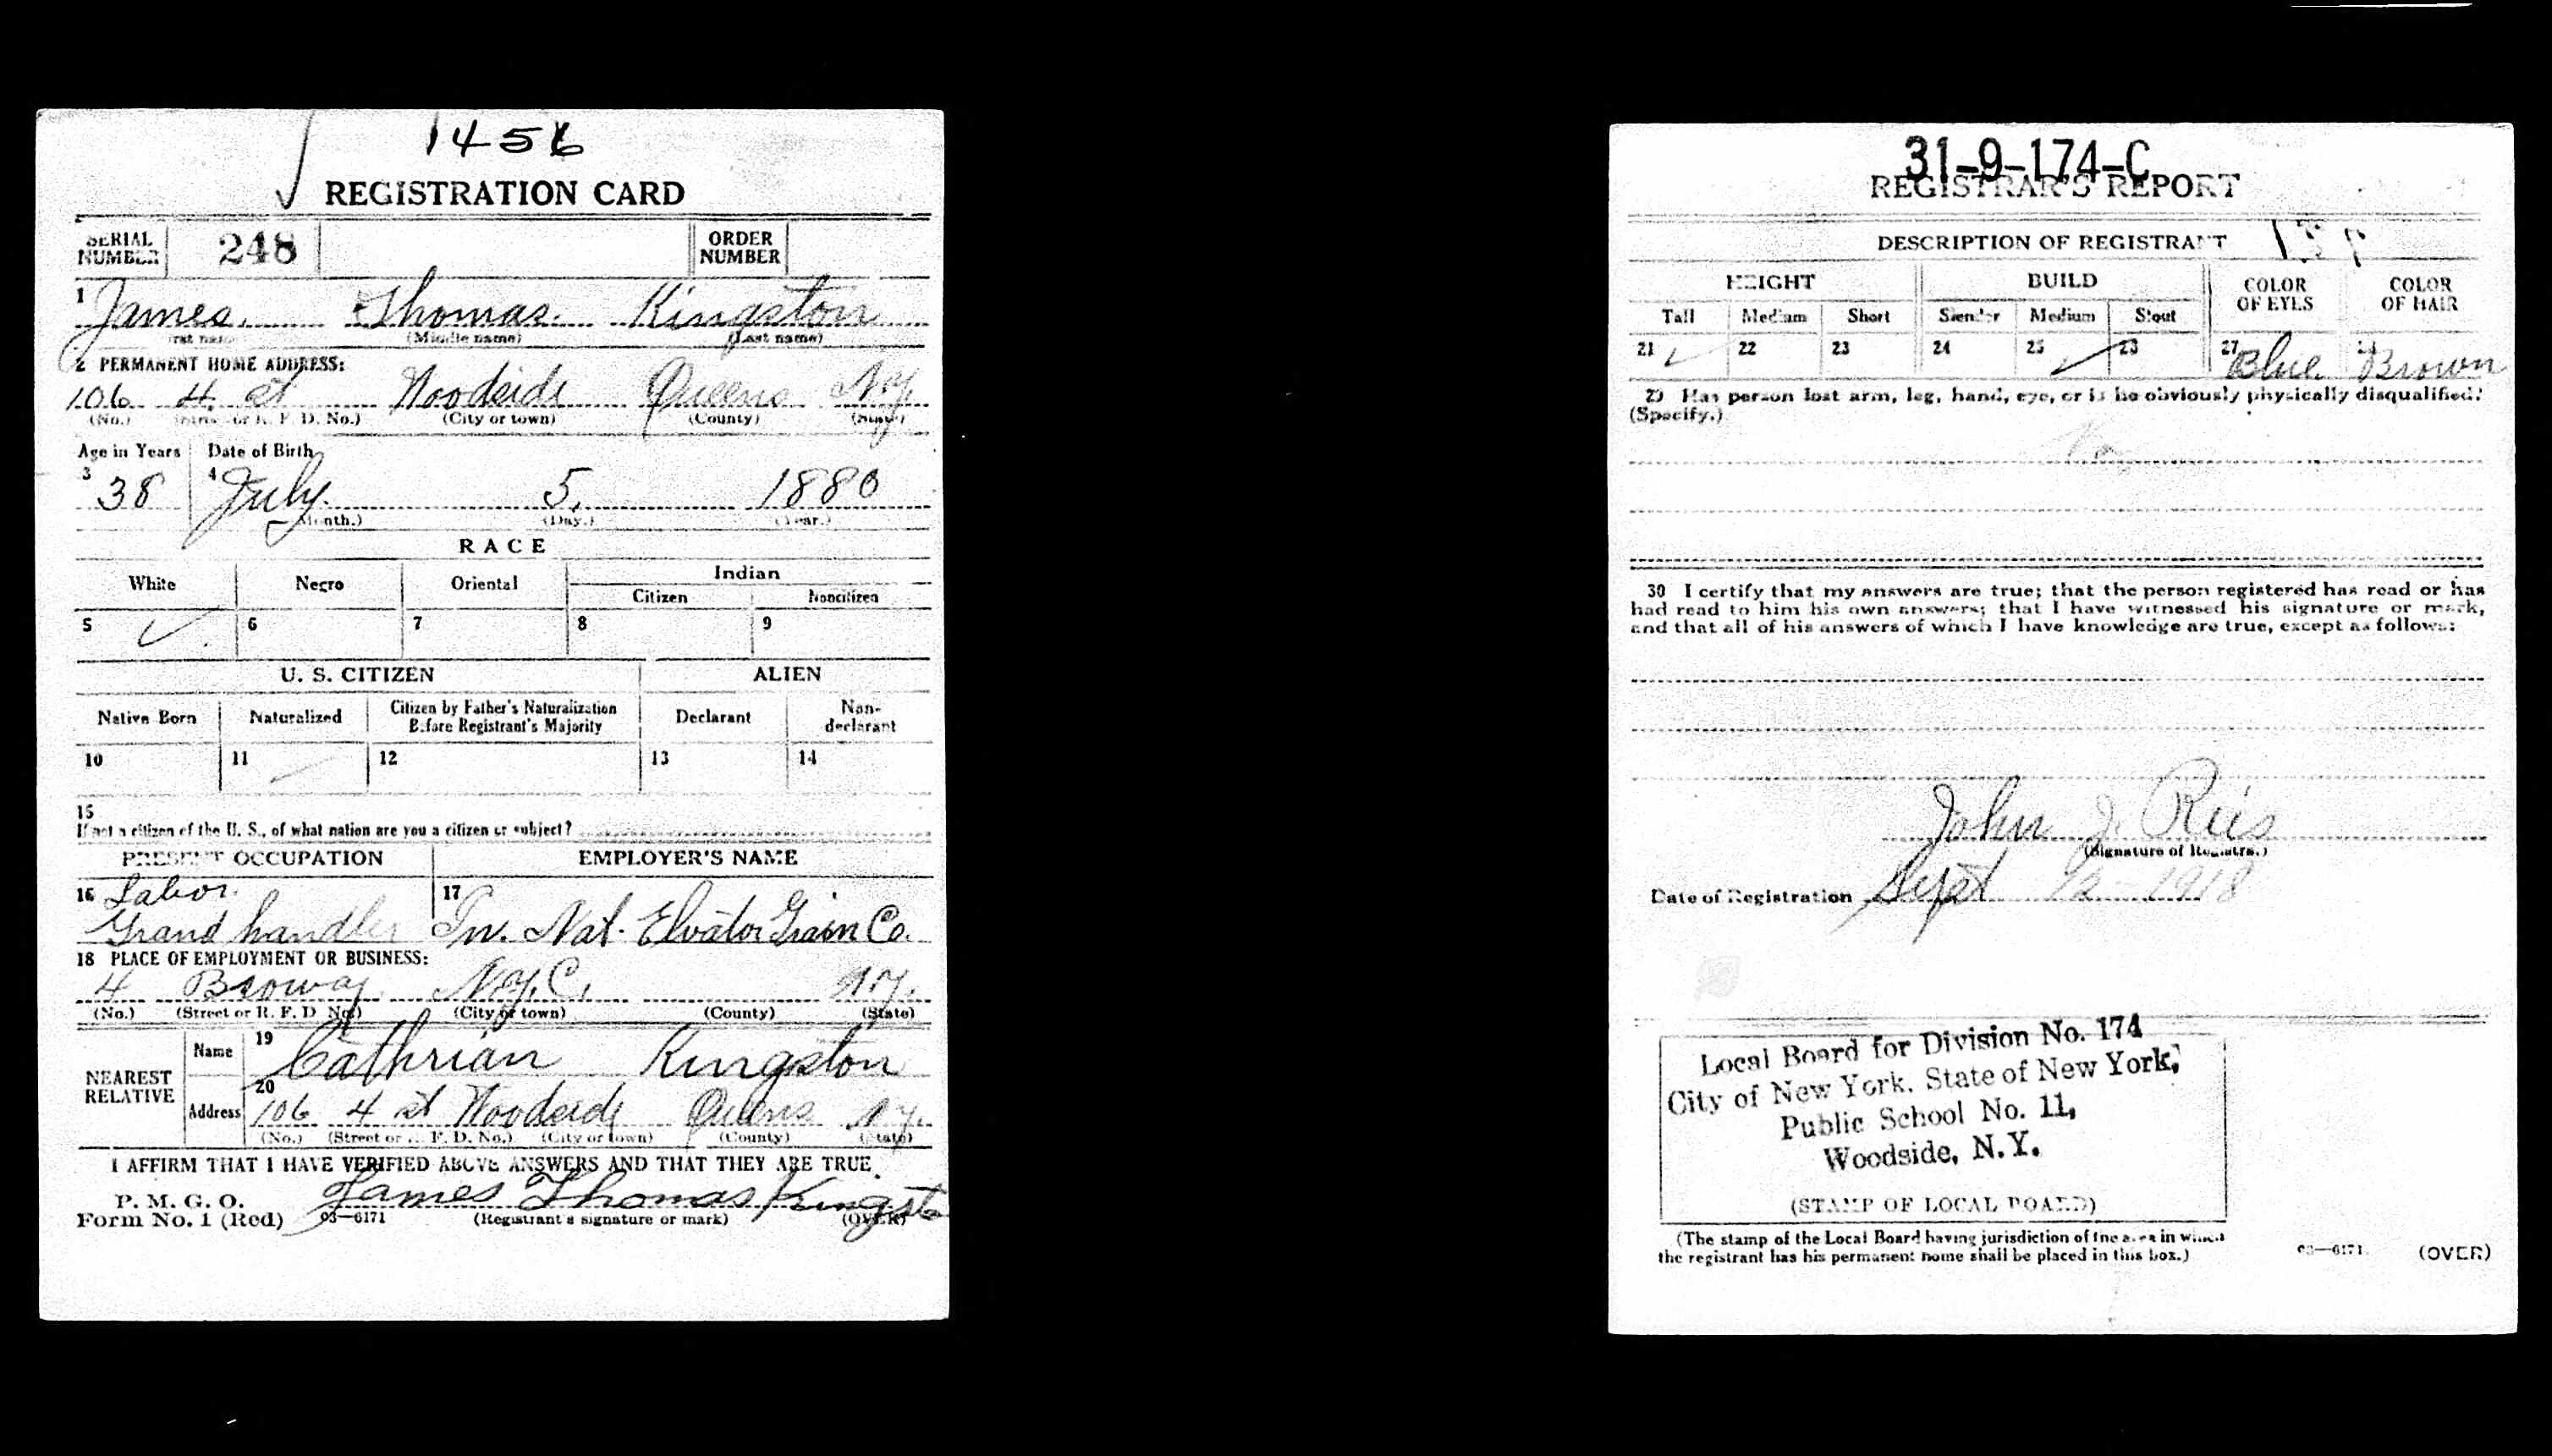 1456
REGISTRATION CARD
SERIAL NUMBER 248 ORDER NUMBER
1 James Thomas Kingston
(First name) (Middle name) (Last name)
2 PERMANENT HOME ADDRESS:
106 4 st Woodside Queens N.Y.
(No.) (Street or R. F. D. No.) (City or town) (County) (State)
Age in Years Date of Birth
3 38 4 July 5, 1880
(Month.) (Day.) (Year.)
RACE
White Negro Oriental Indian
Citizen Noncitizen
5 ✓ 6 7 8 9
U. S. CITIZEN ALIEN
Native Born Naturalized Citizen by Father's Naturalization Before Registrant's Majority Declarant Non-declarant
10 11 ✓ 12 13 14
15
If not a citizen of the U. S., of what nation are you a citizen or subject?
PRESENT OCCUPATION EMPLOYER'S NAME
16 Labor. 17
Grand handler In. Nat. Elvator Grain Co.
18 PLACE OF EMPLOYMENT OR BUSINESS:
4 Broway N.Y.C. N.Y.
(No.) (Street or R. F. D. No.) (City or town) (County) (State)
NEAREST RELATIVE
Name 19 Cathrian Kingston
Address 20 106 4 st Woodside Queens N.Y.
(No.) (Street or R. F. D. No.) (City or town) (County) (State)
I AFFIRM THAT I HAVE VERIFIED ABOVE ANSWERS AND THAT THEY ARE TRUE
P. M. G. O.
Form No. 1 (Red) 03—6171 James Thomas Kingsto
(Registrant's signature or mark) (OVER)
31-9-174-C
REGISTRAR'S REPORT
DESCRIPTION OF REGISTRANT
HEIGHT BUILD COLOR OF EYES COLOR OF HAIR
Tall Medium Short Slender Medium Stout
21 ✓ 22 23 24 25 ✓ 26 27 Blue 28 Brown
29 Has person lost arm, leg, hand, eye, or is he obviously physically disqualified?
(Specify.)
No
30 I certify that my answers are true; that the person registered has read or has
had read to him his own answers; that I have witnessed his signature or mark,
and that all of his answers of which I have knowledge are true, except as follows:
John J. Reis
(Signature of Registrar.)
Date of Registration Sept 12 - 1918
Local Board for Division No. 174
City of New York, State of New York,
Public School No. 11,
Woodside, N. Y.
(STAMP OF LOCAL BOARD)
(The stamp of the Local Board having jurisdiction of the area in which
the registrant has his permanent home shall be placed in this box.)
03—6171 (OVER)